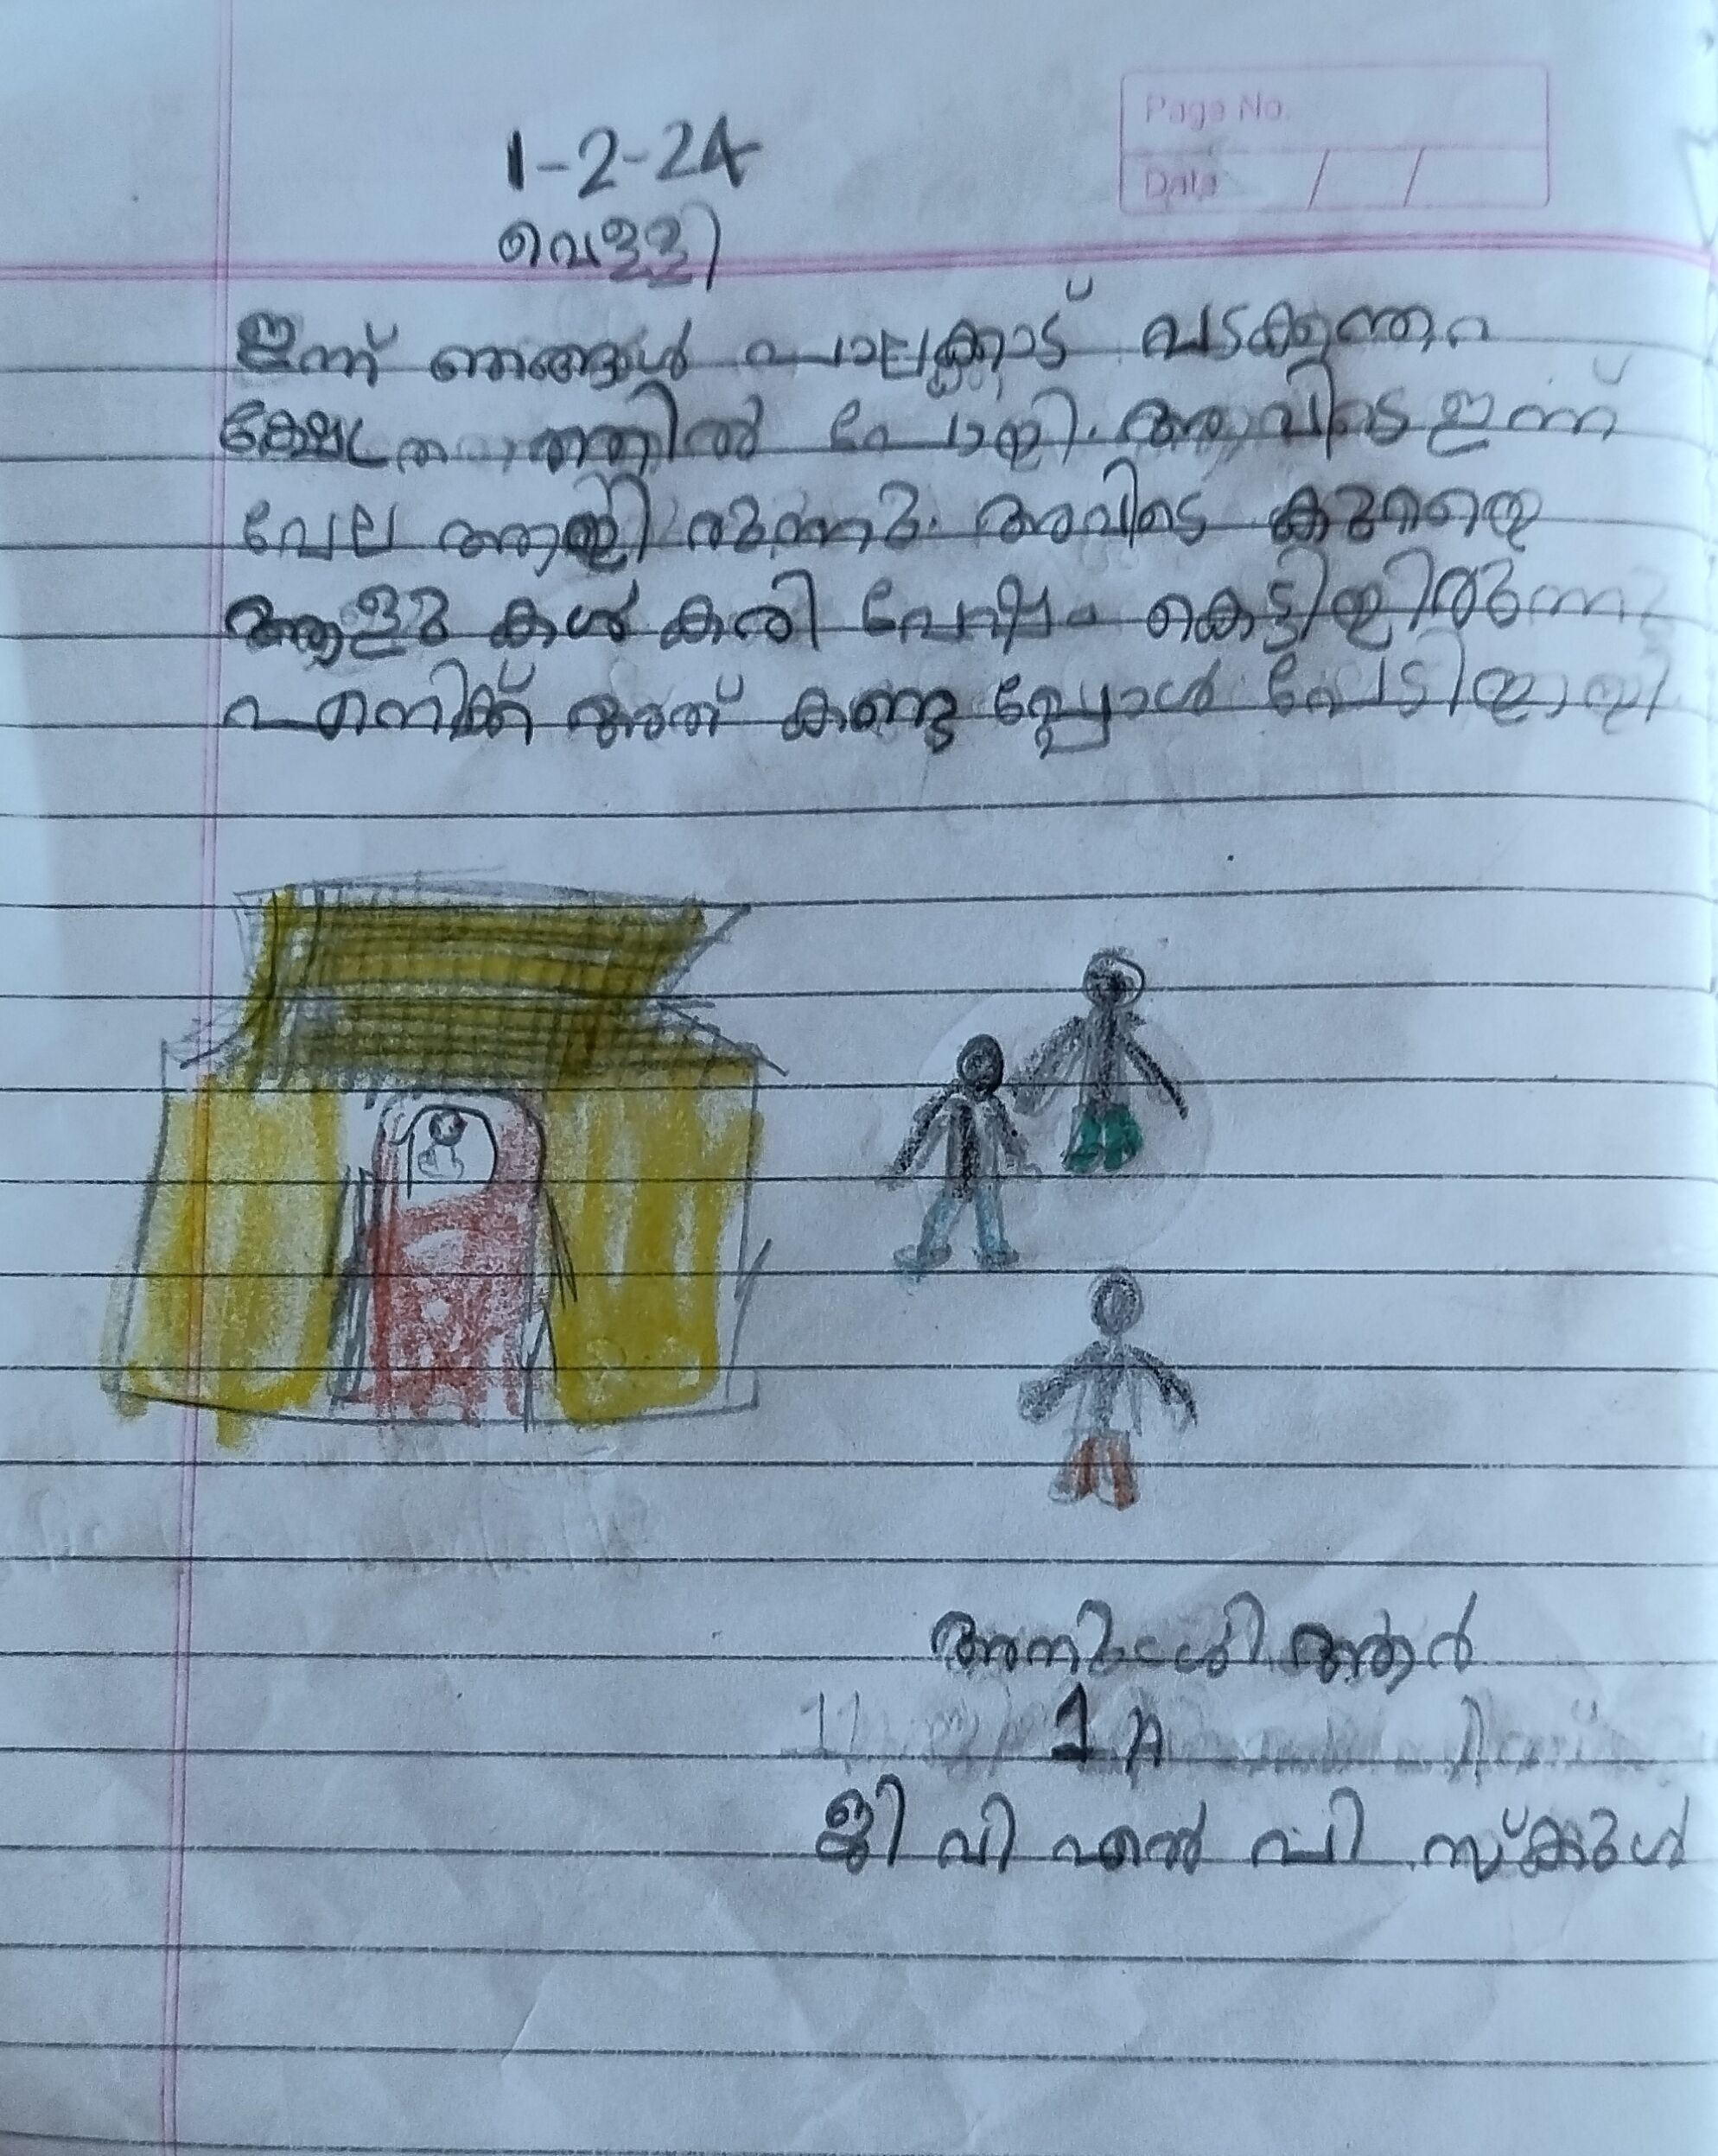 Page No.
Date / /
1-2-24
വെള്ളി
ഇന്ന് ഞങ്ങൾ പാലക്കാട് വടക്കന്തറ
ക്ഷേത്രത്തിൽ പോയി. അവിടെ ഇന്ന്
വേല ആയിരുന്നു. അവിടെ കുറയെ
ആളുകൾ കരി വേഷം കെട്ടിഇരുന്നു
എനിക്ക് അത് കണ്ടപ്പോൾ പേടിആയി
ആർ
1 A
ജി വി എൽ പി സ്കൂൾ